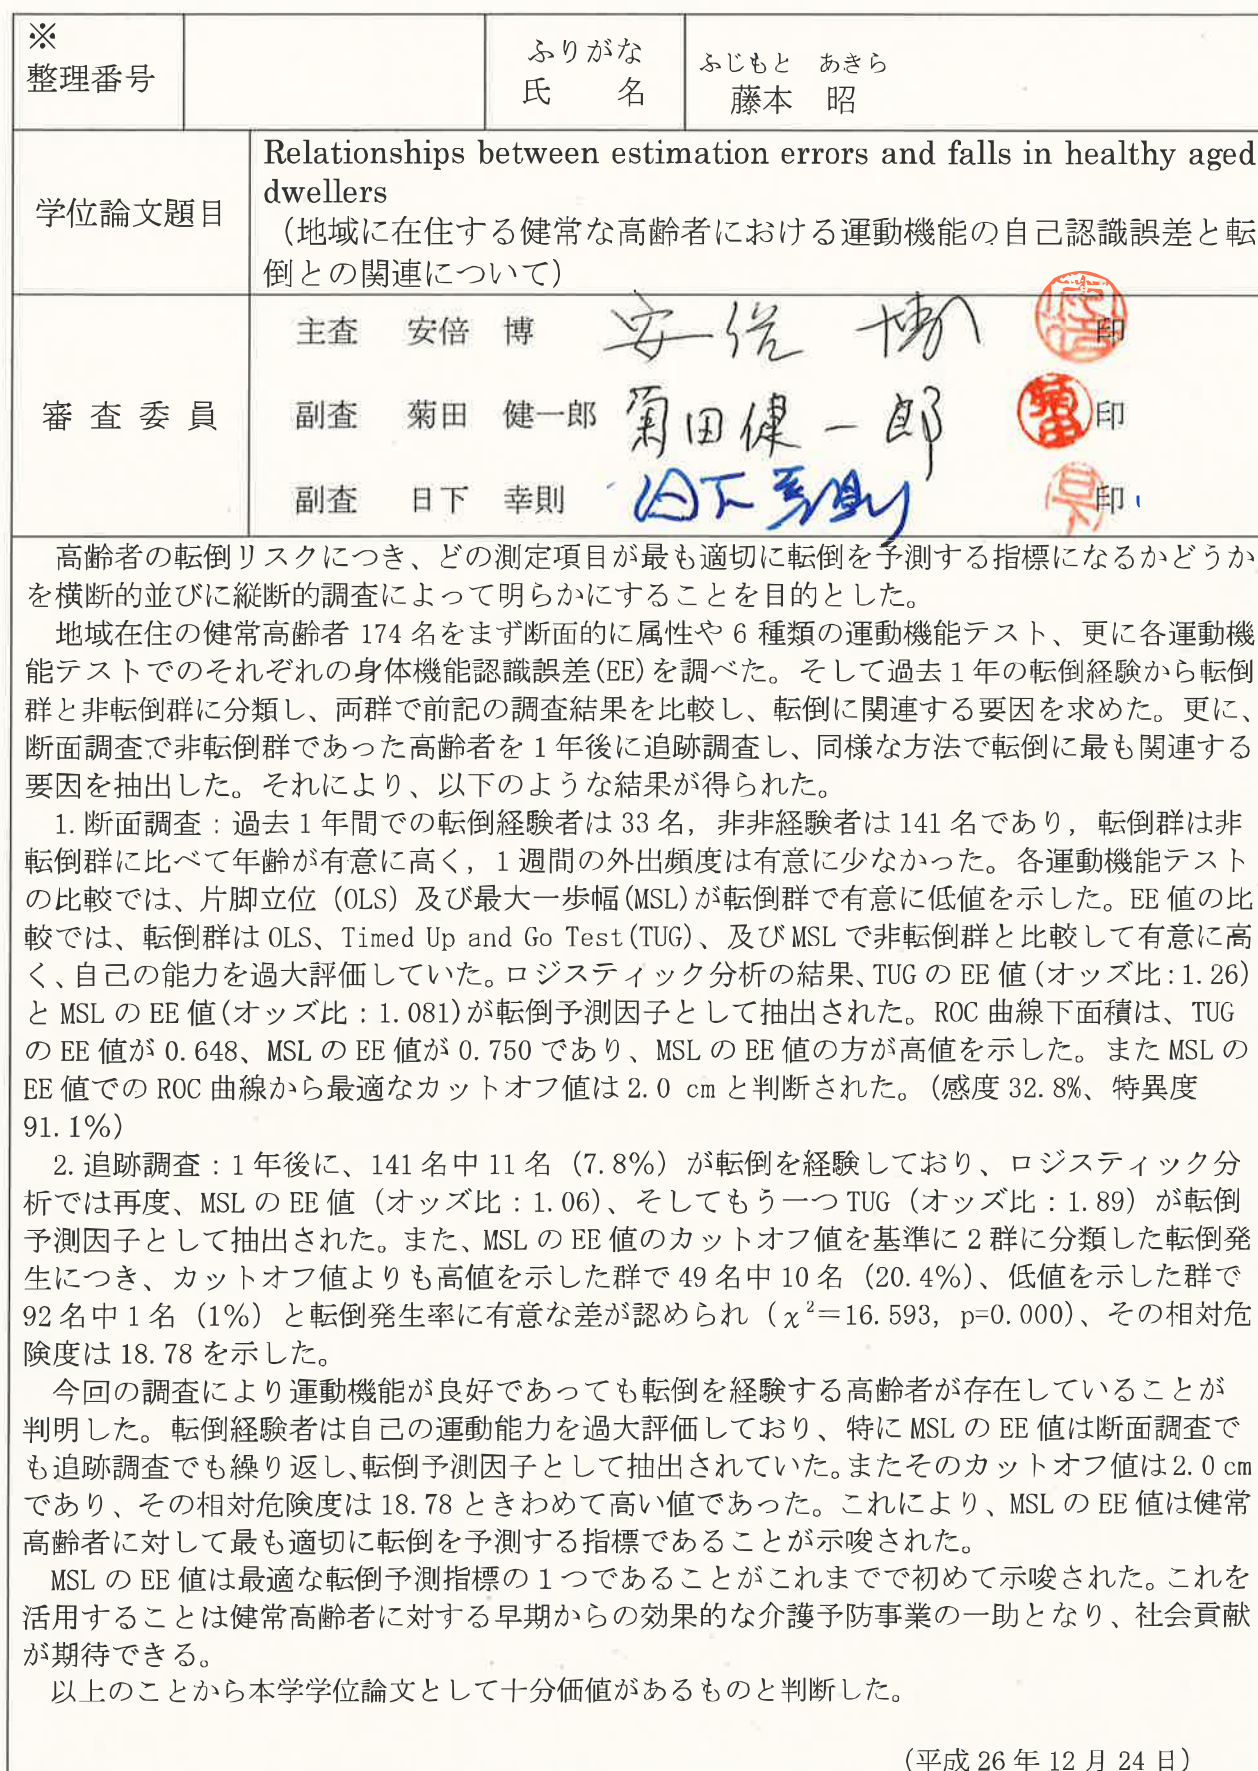 ※
整理番号
ふりがな
氏 名
ふじもと あきら
藤本 昭
学位論文題目
Relationships between estimation errors and falls in healthy aged
dwellers
（地域に在住する健常な高齢者における運動機能の自己認識誤差と転
倒との関連について）
審査委員
主査 安倍 博 安倍 博 印
副査 菊田 健一郎 菊田健一郎 印
副査 日下 幸則 日下幸則 印
高齢者の転倒リスクにつき、どの測定項目が最も適切に転倒を予測する指標になるかどうか
を横断的並びに縦断的調査によって明らかにすることを目的とした。
地域在住の健常高齢者 174 名をまず断面的に属性や 6 種類の運動機能テスト、更に各運動機
能テストでのそれぞれの身体機能認識誤差(EE)を調べた。そして過去 1 年の転倒経験から転倒
群と非転倒群に分類し、両群で前記の調査結果を比較し、転倒に関連する要因を求めた。更に、
断面調査で非転倒群であった高齢者を 1 年後に追跡調査し、同様な方法で転倒に最も関連する
要因を抽出した。それにより、以下のような結果が得られた。
1. 断面調査：過去 1 年間での転倒経験者は 33 名，非非経験者は 141 名であり，転倒群は非
転倒群に比べて年齢が有意に高く，1 週間の外出頻度は有意に少なかった。各運動機能テスト
の比較では、片脚立位（OLS）及び最大一歩幅(MSL)が転倒群で有意に低値を示した。EE 値の比
較では、転倒群は OLS、Timed Up and Go Test(TUG)、及び MSL で非転倒群と比較して有意に高
く、自己の能力を過大評価していた。ロジスティック分析の結果、TUG の EE 値(オッズ比：1.26)
と MSL の EE 値(オッズ比：1.081)が転倒予測因子として抽出された。ROC 曲線下面積は、TUG
の EE 値が 0.648、MSL の EE 値が 0.750 であり、MSL の EE 値の方が高値を示した。また MSL の
EE 値での ROC 曲線から最適なカットオフ値は 2.0 cm と判断された。(感度 32.8%、特異度
91.1%)
2. 追跡調査：1 年後に、141 名中 11 名（7.8%）が転倒を経験しており、ロジスティック分
析では再度、MSL の EE 値（オッズ比：1.06）、そしてもう一つ TUG（オッズ比：1.89）が転倒
予測因子として抽出された。また、MSL の EE 値のカットオフ値を基準に 2 群に分類した転倒発
生につき、カットオフ値よりも高値を示した群で 49 名中 10 名（20.4%）、低値を示した群で
92 名中 1 名（1%）と転倒発生率に有意な差が認められ（χ²＝16.593, p=0.000）、その相対危
険度は 18.78 を示した。
今回の調査により運動機能が良好であっても転倒を経験する高齢者が存在していることが
判明した。転倒経験者は自己の運動能力を過大評価しており、特に MSL の EE 値は断面調査で
も追跡調査でも繰り返し、転倒予測因子として抽出されていた。またそのカットオフ値は 2.0 cm
であり、その相対危険度は 18.78 ときわめて高い値であった。これにより、MSL の EE 値は健常
高齢者に対して最も適切に転倒を予測する指標であることが示唆された。
MSL の EE 値は最適な転倒予測指標の 1 つであることがこれまでで初めて示唆された。これを
活用することは健常高齢者に対する早期からの効果的な介護予防事業の一助となり、社会貢献
が期待できる。
以上のことから本学学位論文として十分価値があるものと判断した。
（平成 26 年 12 月 24 日）